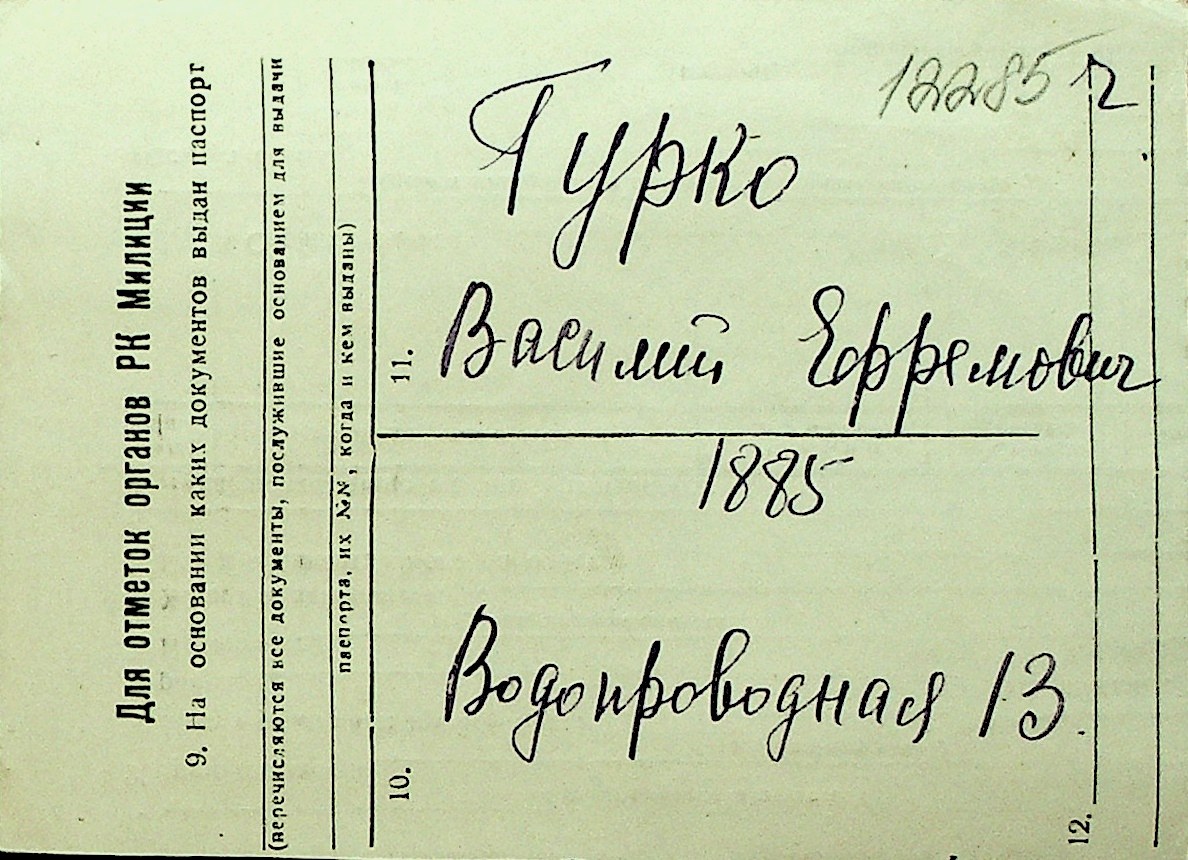 Для отметок органов РК Милиции
9. На основании каких документов выдан паспорт
(перечисляются все документы, послужившие основанием для выдачи
паспорта, их №№, когда и кем выданы)
10.
11.
12.
12285 г
Гурко
Василий Ефремович
1885
Водопроводная 13.